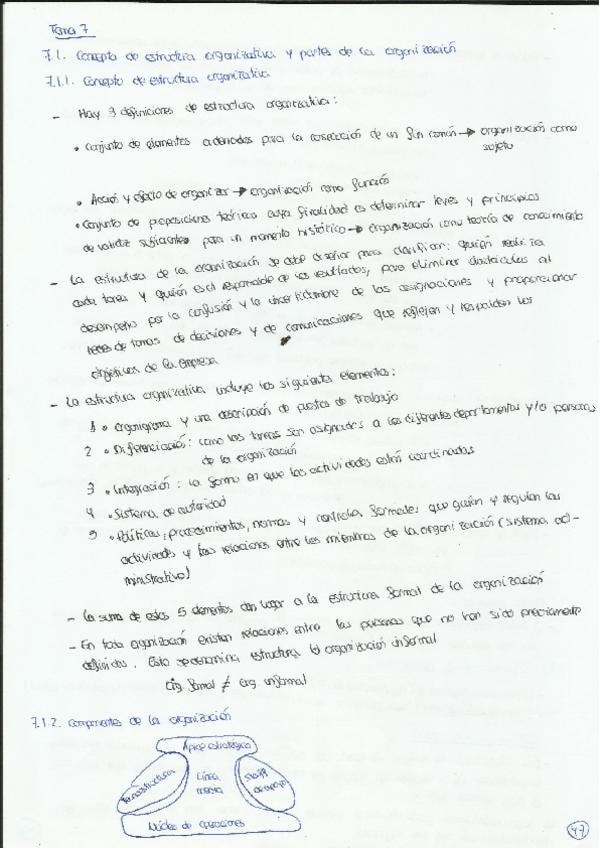 Tema 7
7.1. Concepto de estructura organizativa y partes de la organización
7.1.1. Concepto de estructura organizativa
- Hay 3 definiciones de estructura organizativa:
• Conjunto de elementos ordenados para la consecución de un fin común → organización como
sujeto
• Acción y efecto de organizar → organización como función
• Conjunto de proposiciones teóricas cuya finalidad es determinar leyes y principios
de validez suficientes para un momento histórico → organización como teoría de conocimiento
- La estructura de la organización se debe diseñar para clarificar: quién realiza
cada tarea y quién es el responsable de los resultados, para eliminar obstáculos al
desempeño por la confusión y la incertidumbre de las asignaciones y proporcionar
redes de tomas de decisiones y de comunicaciones que reflejen y respalden los
objetivos de la empresa
- La estructura organizativa incluye los siguientes elementos:
1 • Organigrama y una descripción de puestos de trabajo
2 • Diferenciación: como las tareas son asignadas a los diferentes departamentos y/o personas
de la organización
3 • Integración: la forma en que las actividades están coordinadas
4 • Sistema de autoridad
5 • Políticas, procedimientos, normas y controles formales que guíen y regulen las
actividades y las relaciones entre los miembros de la organización (sistema ad-
ministrativo)
- La suma de estos 5 elementos dan lugar a la estructura formal de la organización
- En toda organización existen relaciones entre las personas que no han sido previamente
definidas. Esto se denomina estructura u organización informal
Org. formal ≠ Org. informal
7.1.2. Componentes de la organización
Ápice estratégico
Tecnoestructura
Línea
media
Staff
de apoyo
Núcleo de operaciones
47